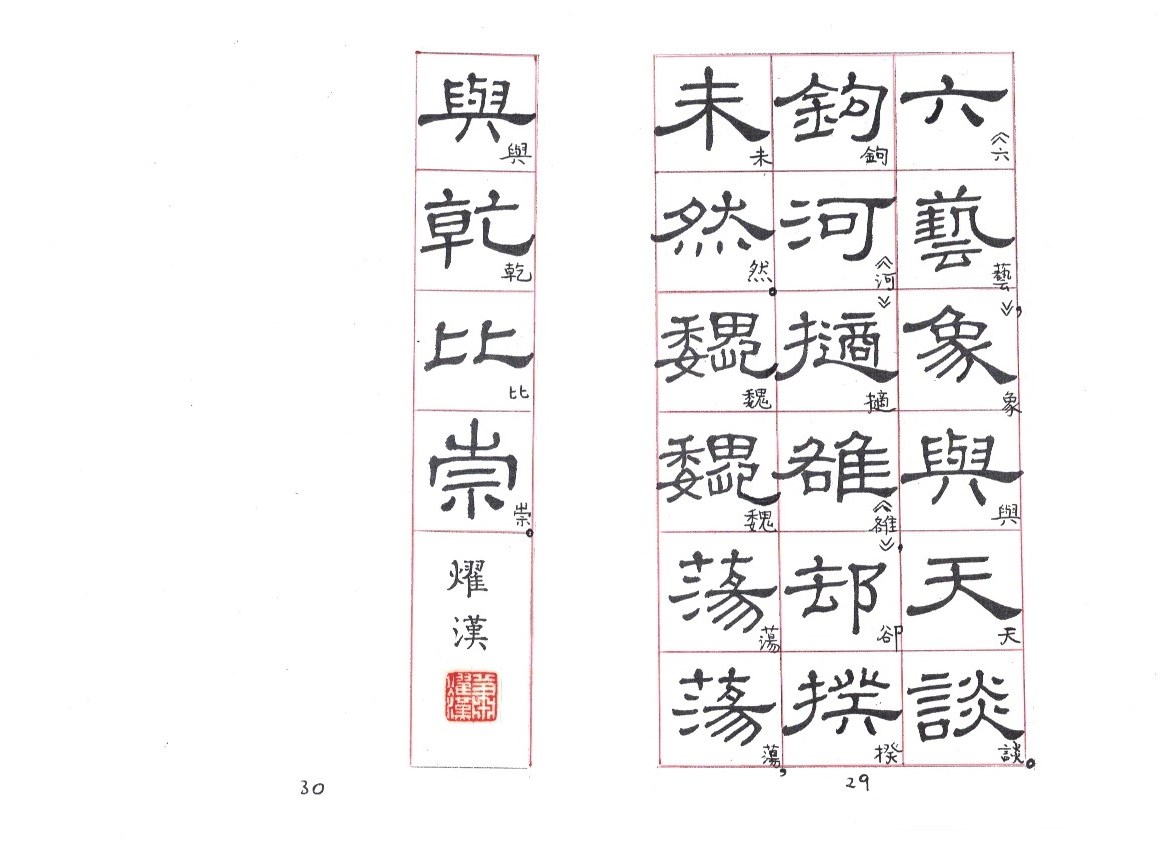 六藝象與天談
《六藝》，象與天談。
鉤河擿雒却揆
鉤《河》擿《雒》，卻揆
未然魏魏蕩蕩
未然。魏魏蕩蕩，
29
與乾比崇
與乾比崇。
燿漢
30